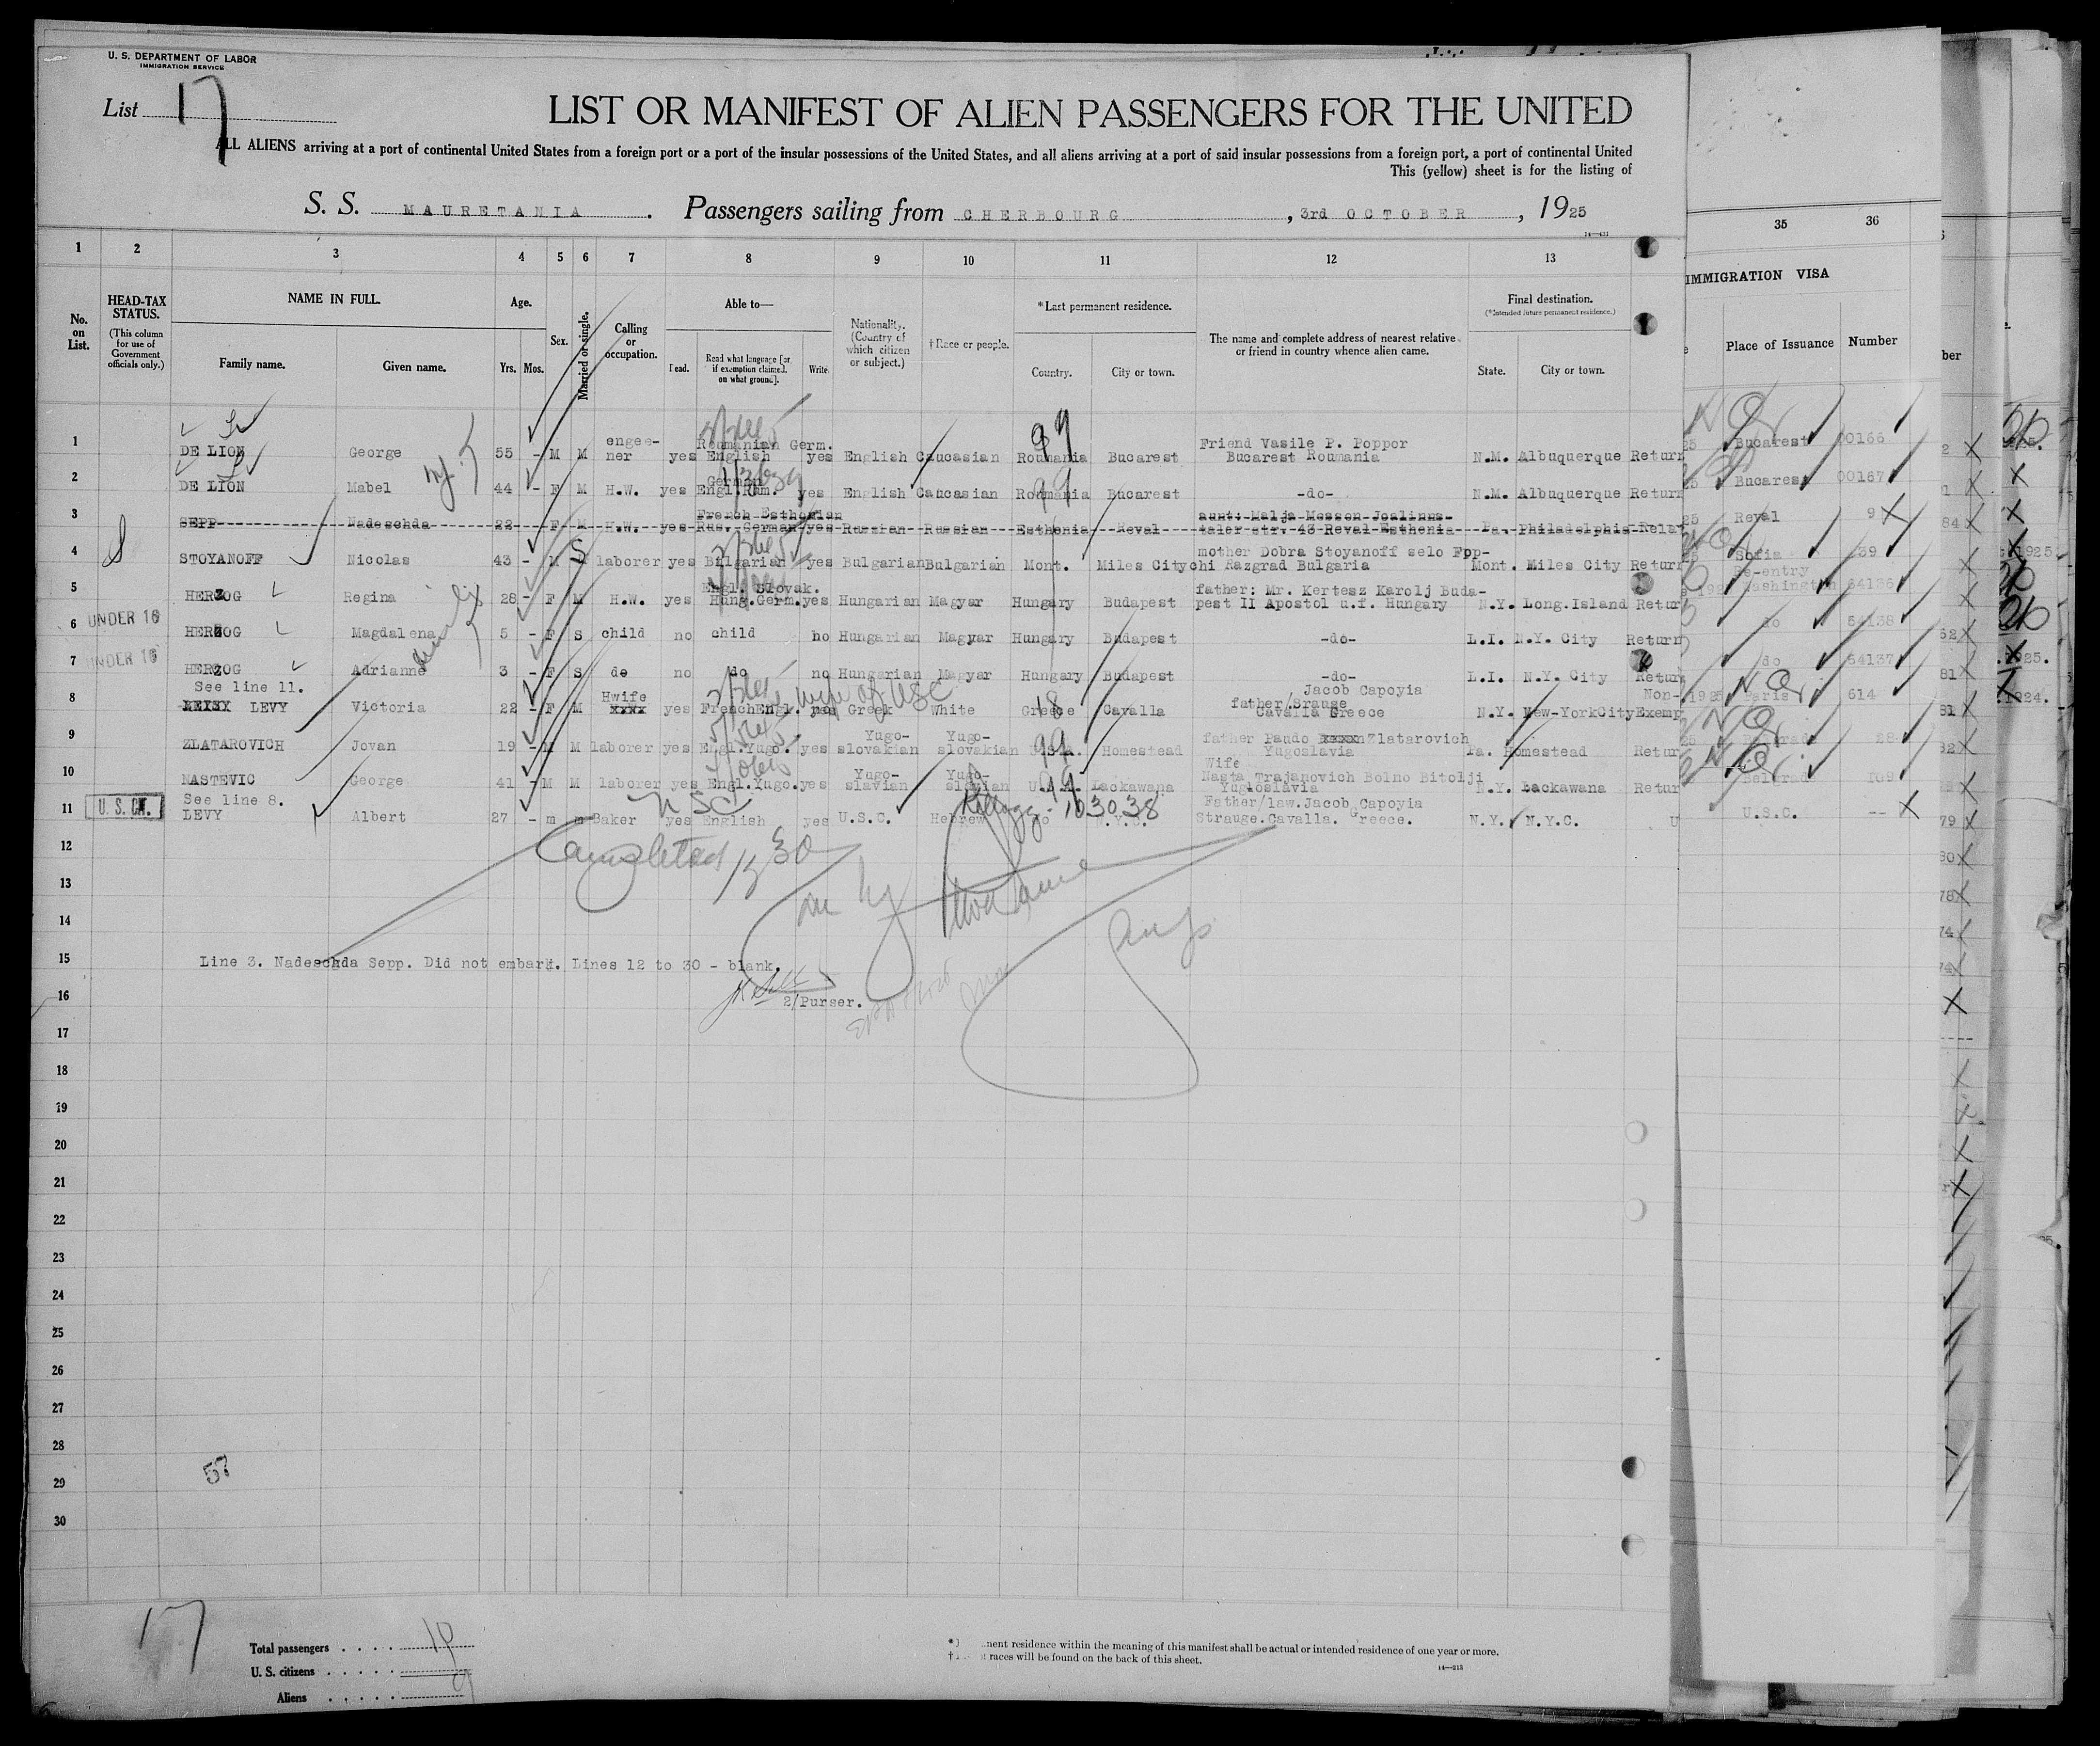 U. S. DEPARTMENT OF LABOR
IMMIGRATION SERVICE
List 17
LIST OR MANIFEST OF ALIEN PASSENGERS FOR THE UNITED
ALL ALIENS arriving at a port of continental United States from a foreign port or a port of the insular possessions of the United States, and all aliens arriving at a port of said insular possessions from a foreign port, a port of continental United
This (yellow) sheet is for the listing of
S. S. MAURETANIA . Passengers sailing from CHERBOURG , 3rd OCTOBER , 1925
1 2 3 4 5 6 7 8 9 10 11 12 13 35 36
No. on List.
HEAD-TAX STATUS.
(This column for use of Government officials only.)
NAME IN FULL.
Family name. Given name.
Age.
Yrs. Mos.
Sex.
Married or single.
Calling or occupation.
Able to—
Read. Read what language [or, if exemption claimed, on what ground]. Write.
Nationality. (Country of which citizen or subject.)
†Race or people.
*Last permanent residence.
Country. City or town.
The name and complete address of nearest relative or friend in country whence alien came.
Final destination.
(*Intended future permanent residence.)
State. City or town.
IMMIGRATION VISA
Place of Issuance Number
1 DE LION George 55 - M M engee-ner yes Roumanian Germ. English yes English Caucasian Roumania Bucarest Friend Vasile P. Poppor Bucarest Roumania N.M. Albuquerque Return Bucarest 00166
2 DE LION Mabel 44 - F M H.W. yes German Engl.Rum. yes English Caucasian Roumania Bucarest -do- N.M. Albuquerque Return Bucarest 00167
3 SEPP Nadeschda 22 - F M H.W. yes French Esthonian Rus. German yes Russian Russian Esthonia Reval aunt: Malja Mosson Joalinns-taler str. 43 Reval Esthenia Pa. Philadelphia Reval 9
4 STOYANOFF Nicolas 43 - M S laborer yes Bulgarian yes Bulgarian Bulgarian Mont. Miles City mother Dobra Stoyanoff selo Fpp-chi Razgrad Bulgaria Mont. Miles City Return Sofia 39
5 HERZOG Regina 28 - F M H.W. yes Engl. Slovak. Hung.Germ. yes Hungarian Magyar Hungary Budapest father: Mr. Kertesz Karolj Buda-pest II Apostol u.f. Hungary N.Y. Long.Island Retur Re-entry Washington 64136
6 UNDER 16 HERZOG Magdalena 5 - F S child no child no Hungarian Magyar Hungary Budapest -do- L.I. N.Y. City Return do 64138
7 UNDER 16 HERZOG Adrianne 3 - F S do no do no Hungarian Magyar Hungary Budapest -do- L.I. N.Y. City Return do 64137
See line 11.
8 LEVY Victoria 22 - F M Hwife yes French Engl. yes Greek White Greece Cavalla father/Jacob Capoyia Strauge Cavalla Greece N.Y. New-York City Non-Exemp Paris 614
wife of USC
9 ZLATAROVICH Jovan 19 - M M laborer yes Engl.Yugo. yes Yugo-slovakian Yugo-slovakian U.S.A. Homestead father Paudo Zlatarovich Yugoslavia Pa. Homestead Retur
10 NASTEVIC George 41 - M M laborer yes Engl.Yugo. yes Yugo-slavian Yugo-slavian U.S.A. Lackawana Wife Nasta Trajanovich Bolno Bitolji Yugloslavia N.Y. Lackawana Retur Belgrad 109
See line 8.
11 U. S. CIT. LEVY Albert 27 - m m Baker yes English yes U.S.C. Hebrew do N.Y.C. Father/law.Jacob Capoyia Strauge.Cavalla. Greece. N.Y. N.Y.C. U U.S.C. --
USC
103038
12
Completed
13
14
15 Line 3. Nadeschda Sepp. Did not embark. Lines 12 to 30 - blank.
16 2/Purser.
17
18
19
20
21
22
23
24
25
26
27
28
29 57
30
17
Total passengers . . . . . 10
U. S. citizens . . . . .
Aliens . . . . . 9
nent residence within the meaning of this manifest shall be actual or intended residence of one year or more.
races will be found on the back of this sheet.
14—213